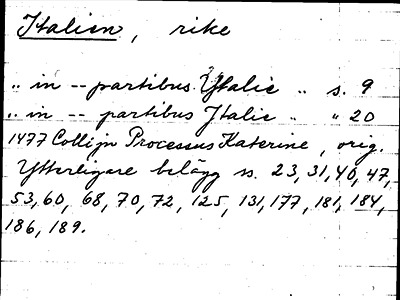 Italien, rike
„ in -- partibus Ytalie „ s. 9
„ in -- partibus Italie „ „ 20
1477 Collijn Processus Katerine, orig.
Ytterligare belägg ss. 23, 31, 40, 47,
53, 60, 68, 70, 72, 125, 131, 177, 181, 184,
186, 189.